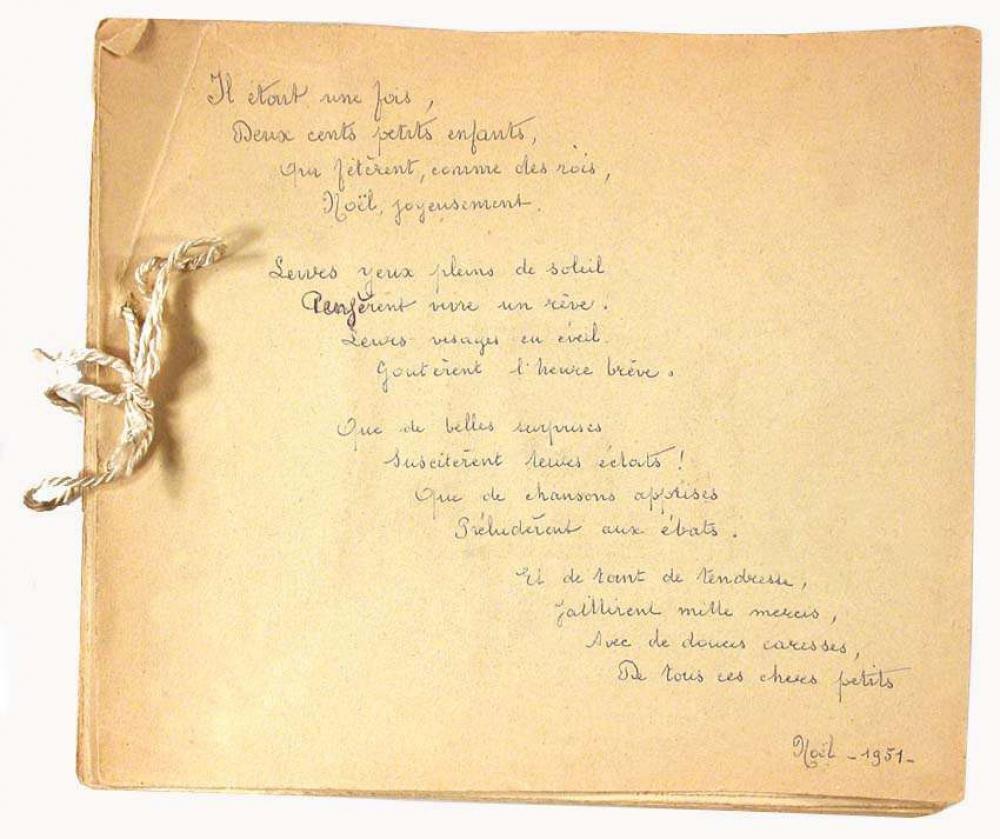 Il était une fois,
Deux cents petits enfants,
Qui fêtèrent, comme des rois,
Noël, joyeusement.
Leurs yeux pleins de soleil
Pensèrent vivre un rêve.
Leurs visages en éveil
Goutèrent l'heure brève.
Que de belles surprises
Suscitèrent leurs éclats !
Que de chansons apprises
Préludèrent aux ébats.
Et de tant de tendresse,
Jaillirent mille mercis,
Avec de douces caresses,
De tous ces chers petits
Noël - 1951 -